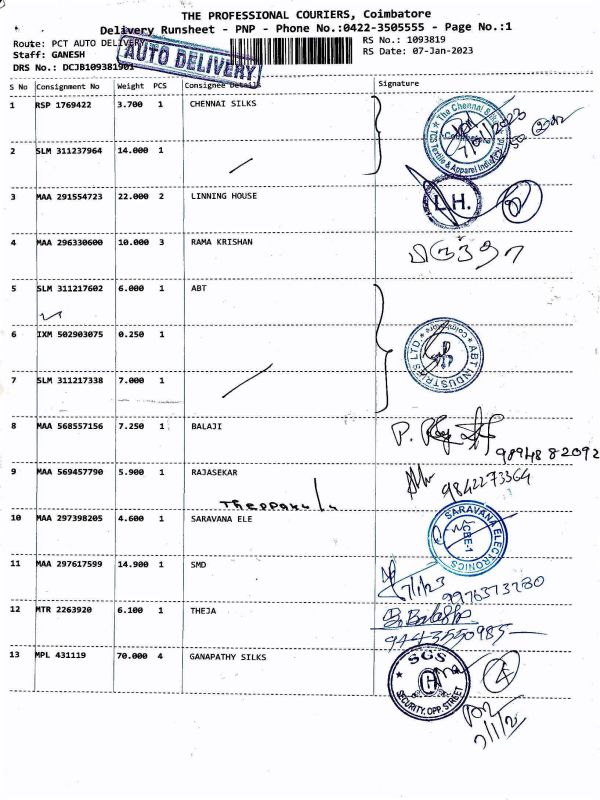 THE PROFESSIONAL COURIERS, Coimbatore
Delivery Runsheet - PNP - Phone No.:0422-3505555 - Page No.:1
Route: PCT AUTO DELIVERY
RS No.: 1093819
Staff: GANESH
RS Date: 07-Jan-2023
DRS No.: DCJB109381901
AUTO DELIVERY
S No Consignment No Weight PCS Consignee Details Signature
1 RSP 1769422 3.700 1 CHENNAI SILKS
The Chennai Silks
7/01/2023
2 SLM 311237964 14.000 1
3 MAA 291554723 22.000 2 LINNING HOUSE
L.H.
4 MAA 296330600 10.000 3 RAMA KRISHAN
5 SLM 311217602 6.000 1 ABT
6 IXM 502903075 0.250 1
ABT INDUSTRIES LTD.
Coimbatore
7 SLM 311217338 7.000 1
8 MAA 568557156 7.250 1 BALAJI
9894882092
9 MAA 569457790 5.900 1 RAJASEKAR
9842273364
10 MAA 297398205 4.600 1 SARAVANA ELE
SARAVANA ELECTRONICS
CBE-1
11 MAA 297617599 14.900 1 SMD
7/1/23
9976373780
12 MTR 2263920 6.100 1 THEJA
9443550985
13 MPL 431119 70.000 4 GANAPATHY SILKS
SGS
H
SECURITY, OPP. STREET
4